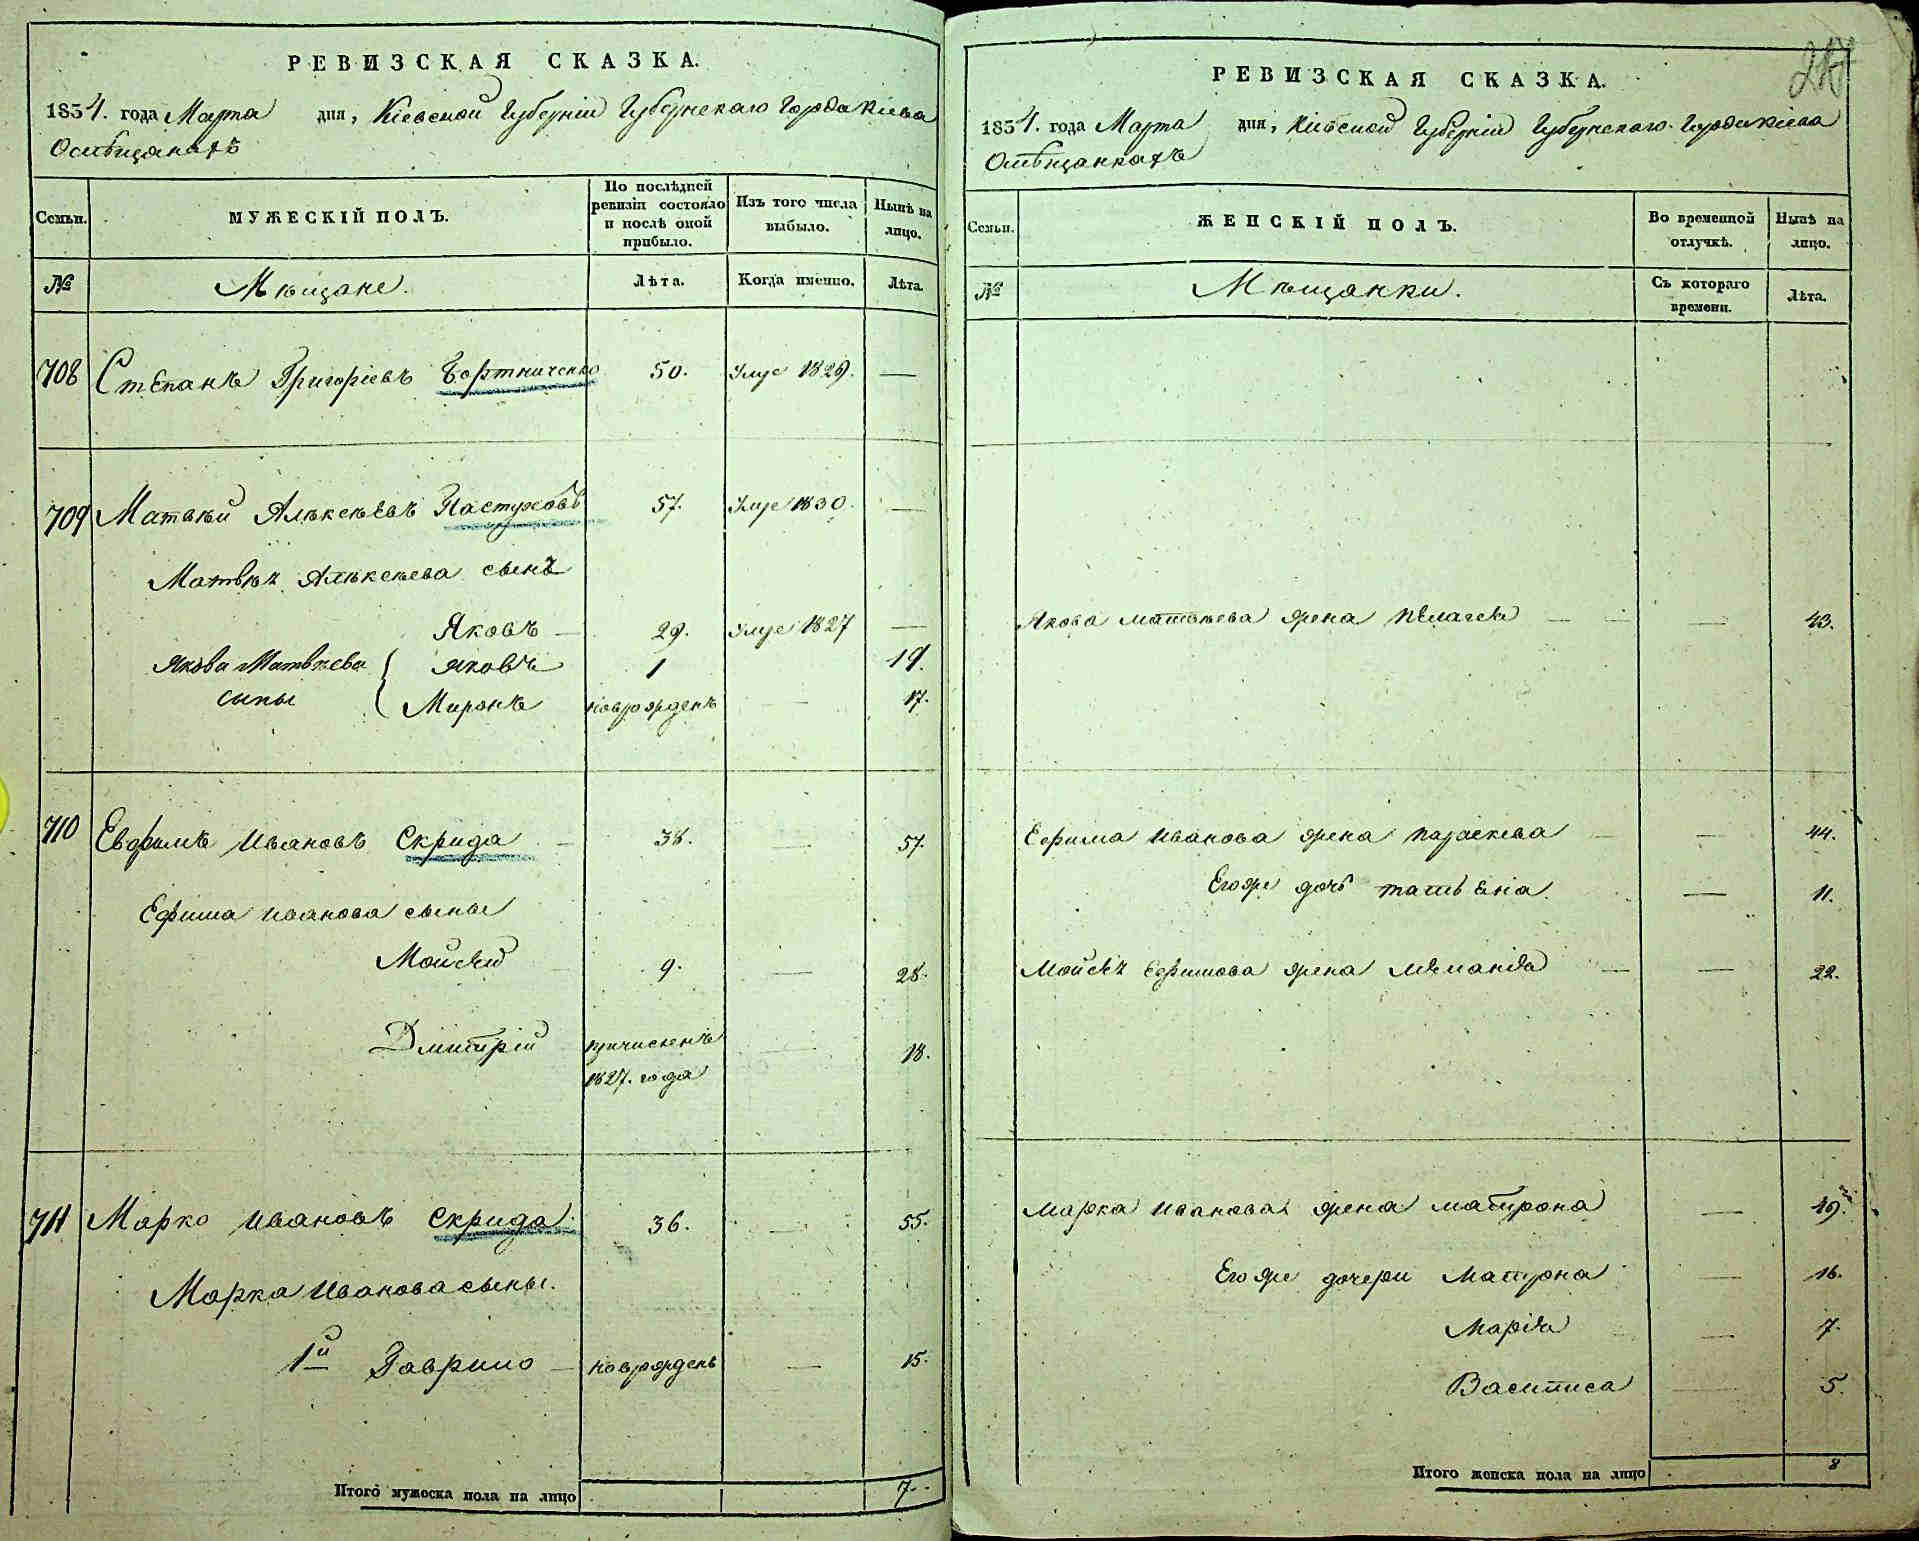 РЕВИЗСКАЯ СКАЗКА.
1834. года Марта дня, Кіевской Губерніи Губернскаго Города Кіева
О мѣщанахъ
Семьи.
МУЖЕСКІЙ ПОЛЪ.
По послѣдней ревизіи состояло и послѣ оной прибыло.
Изъ того числа выбыло.
Нынѣ на лицо.
№
Мѣщане.
Лѣта.
Когда именно.
Лѣта.
708 Степанъ Григоріевъ Бортниченко 50. Умре 1829. —
709 Матвѣй Алѣксѣевъ Пастуховъ 57. Умре 1830. —
Матвѣя Алѣксѣева сынъ
Яковъ — 29. Умре 1827 —
Якова Матвѣева сыны
Яковъ 1 19.
Миронъ новрожденъ — 17.
710 Евфимъ Ивановъ Скрида — 38. — 57.
Ефима Иванова сыны
Мойсей 9. — 28.
Дмитрій причисленъ — 18.
1827. года
711 Марко Ивановъ Скрида. 36. — 55.
Марка Иванова сыны.
1й Гаврило — новрожденъ — 15.
Итого мужеска пола на лицо 7.
РЕВИЗСКАЯ СКАЗКА.
1834. года Марта дня, Кіевской Губерніи Губернскаго Города Кіева
О мѣщанкахъ
Семьи.
ЖЕНСКІЙ ПОЛЪ.
Во временной отлучкѣ.
Нынѣ на лицо.
№
Мѣщанки.
Съ котораго времени.
Лѣта.
Якова Матвѣева жена Пелагея — — 43.
Ефима Иванова жена Параскева — — 44.
Его же дочь Татьяна — 11.
Мойсея Ефимова жена Меланія — — 22.
Марка Иванова жена Матрона — 49.
Его же дочери Матрона — 16.
Марія — 7.
Василиса — 5.
Итого женска пола на лицо 8